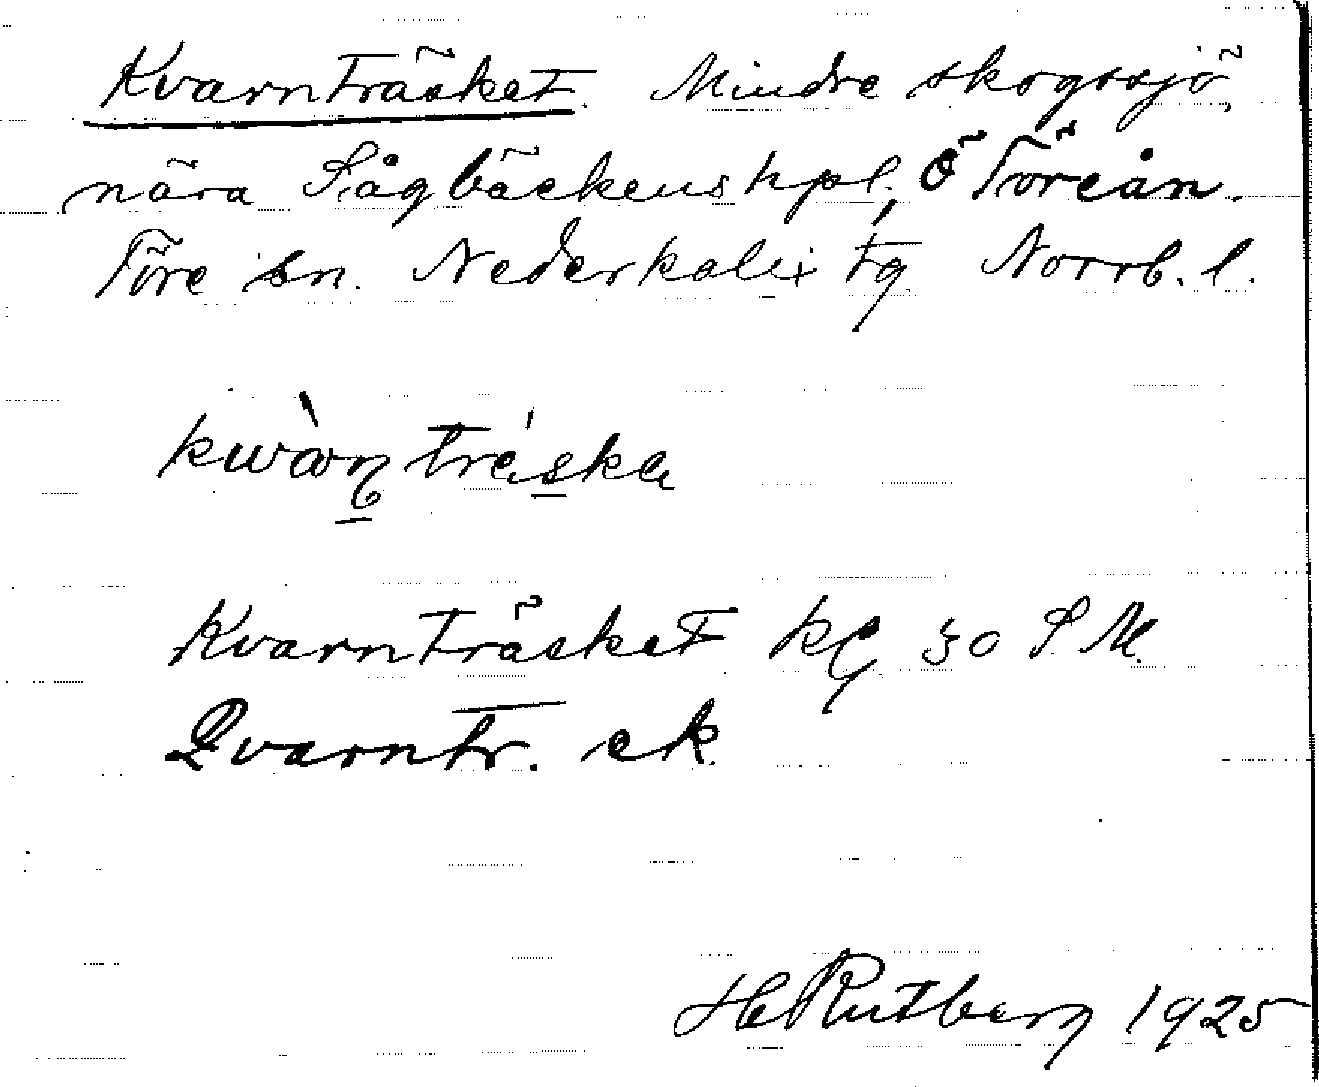 Kvarnträsket. Mindre skogssjö,
nära Sågbäckens hpl, Ö Töreån.
Töre sn. Nederkalix tg Norrb. l.
kwàn tréska
Kvarnträsket kg 30 S M.
Qvarntr. ek.
H Rutberg 1925